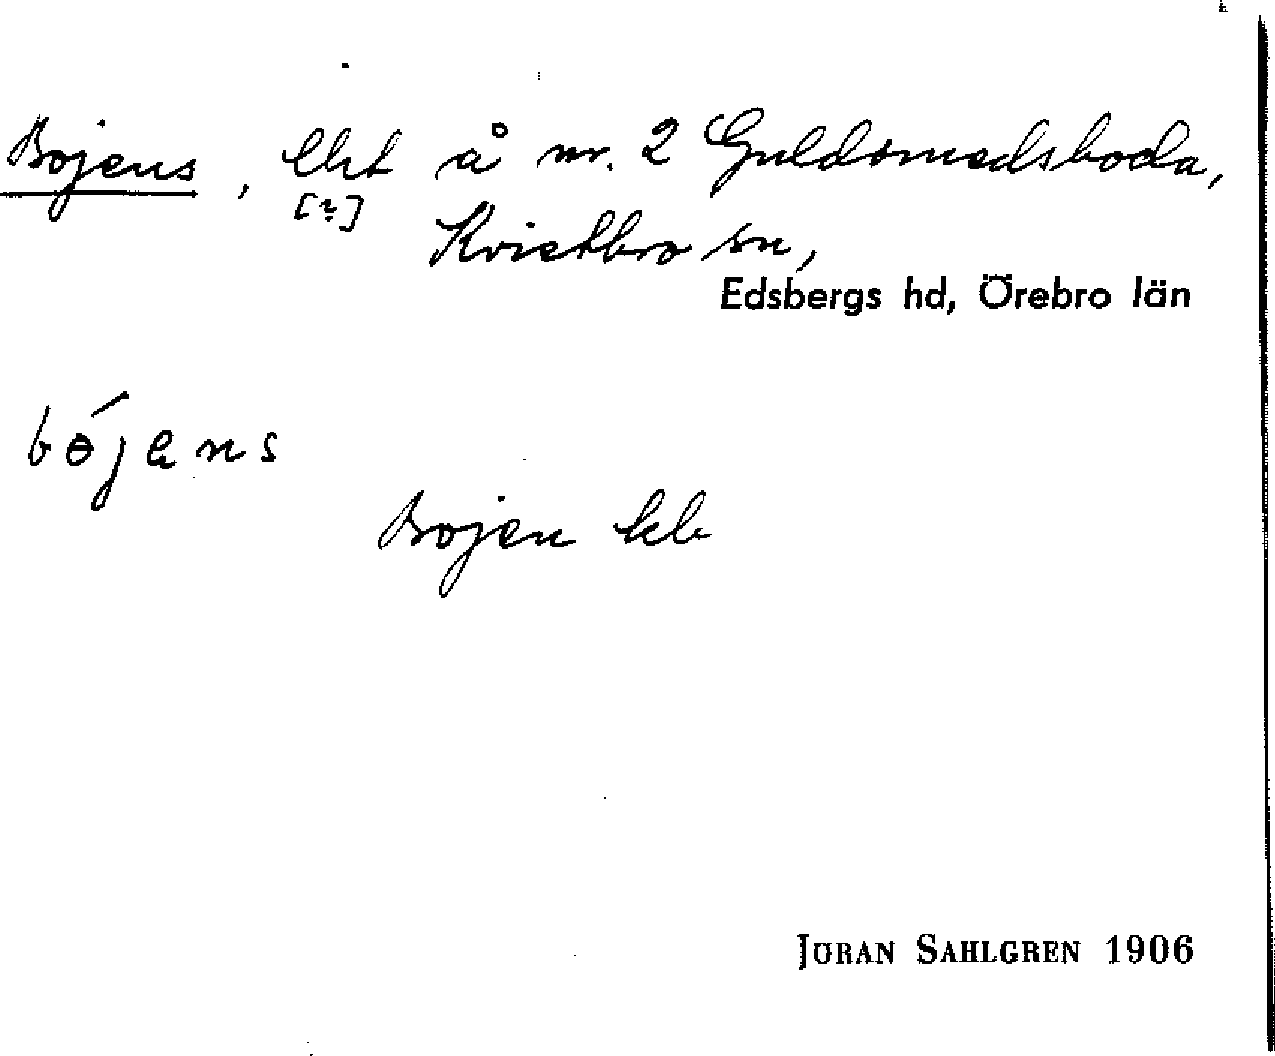 Bojens, lht å nr. 2 Guldsmedsboda,
[?]
Kvistbro sn,
Edsbergs hd, Örebro län
bójens
Bojen kb
JÖRAN SAHLGREN 1906